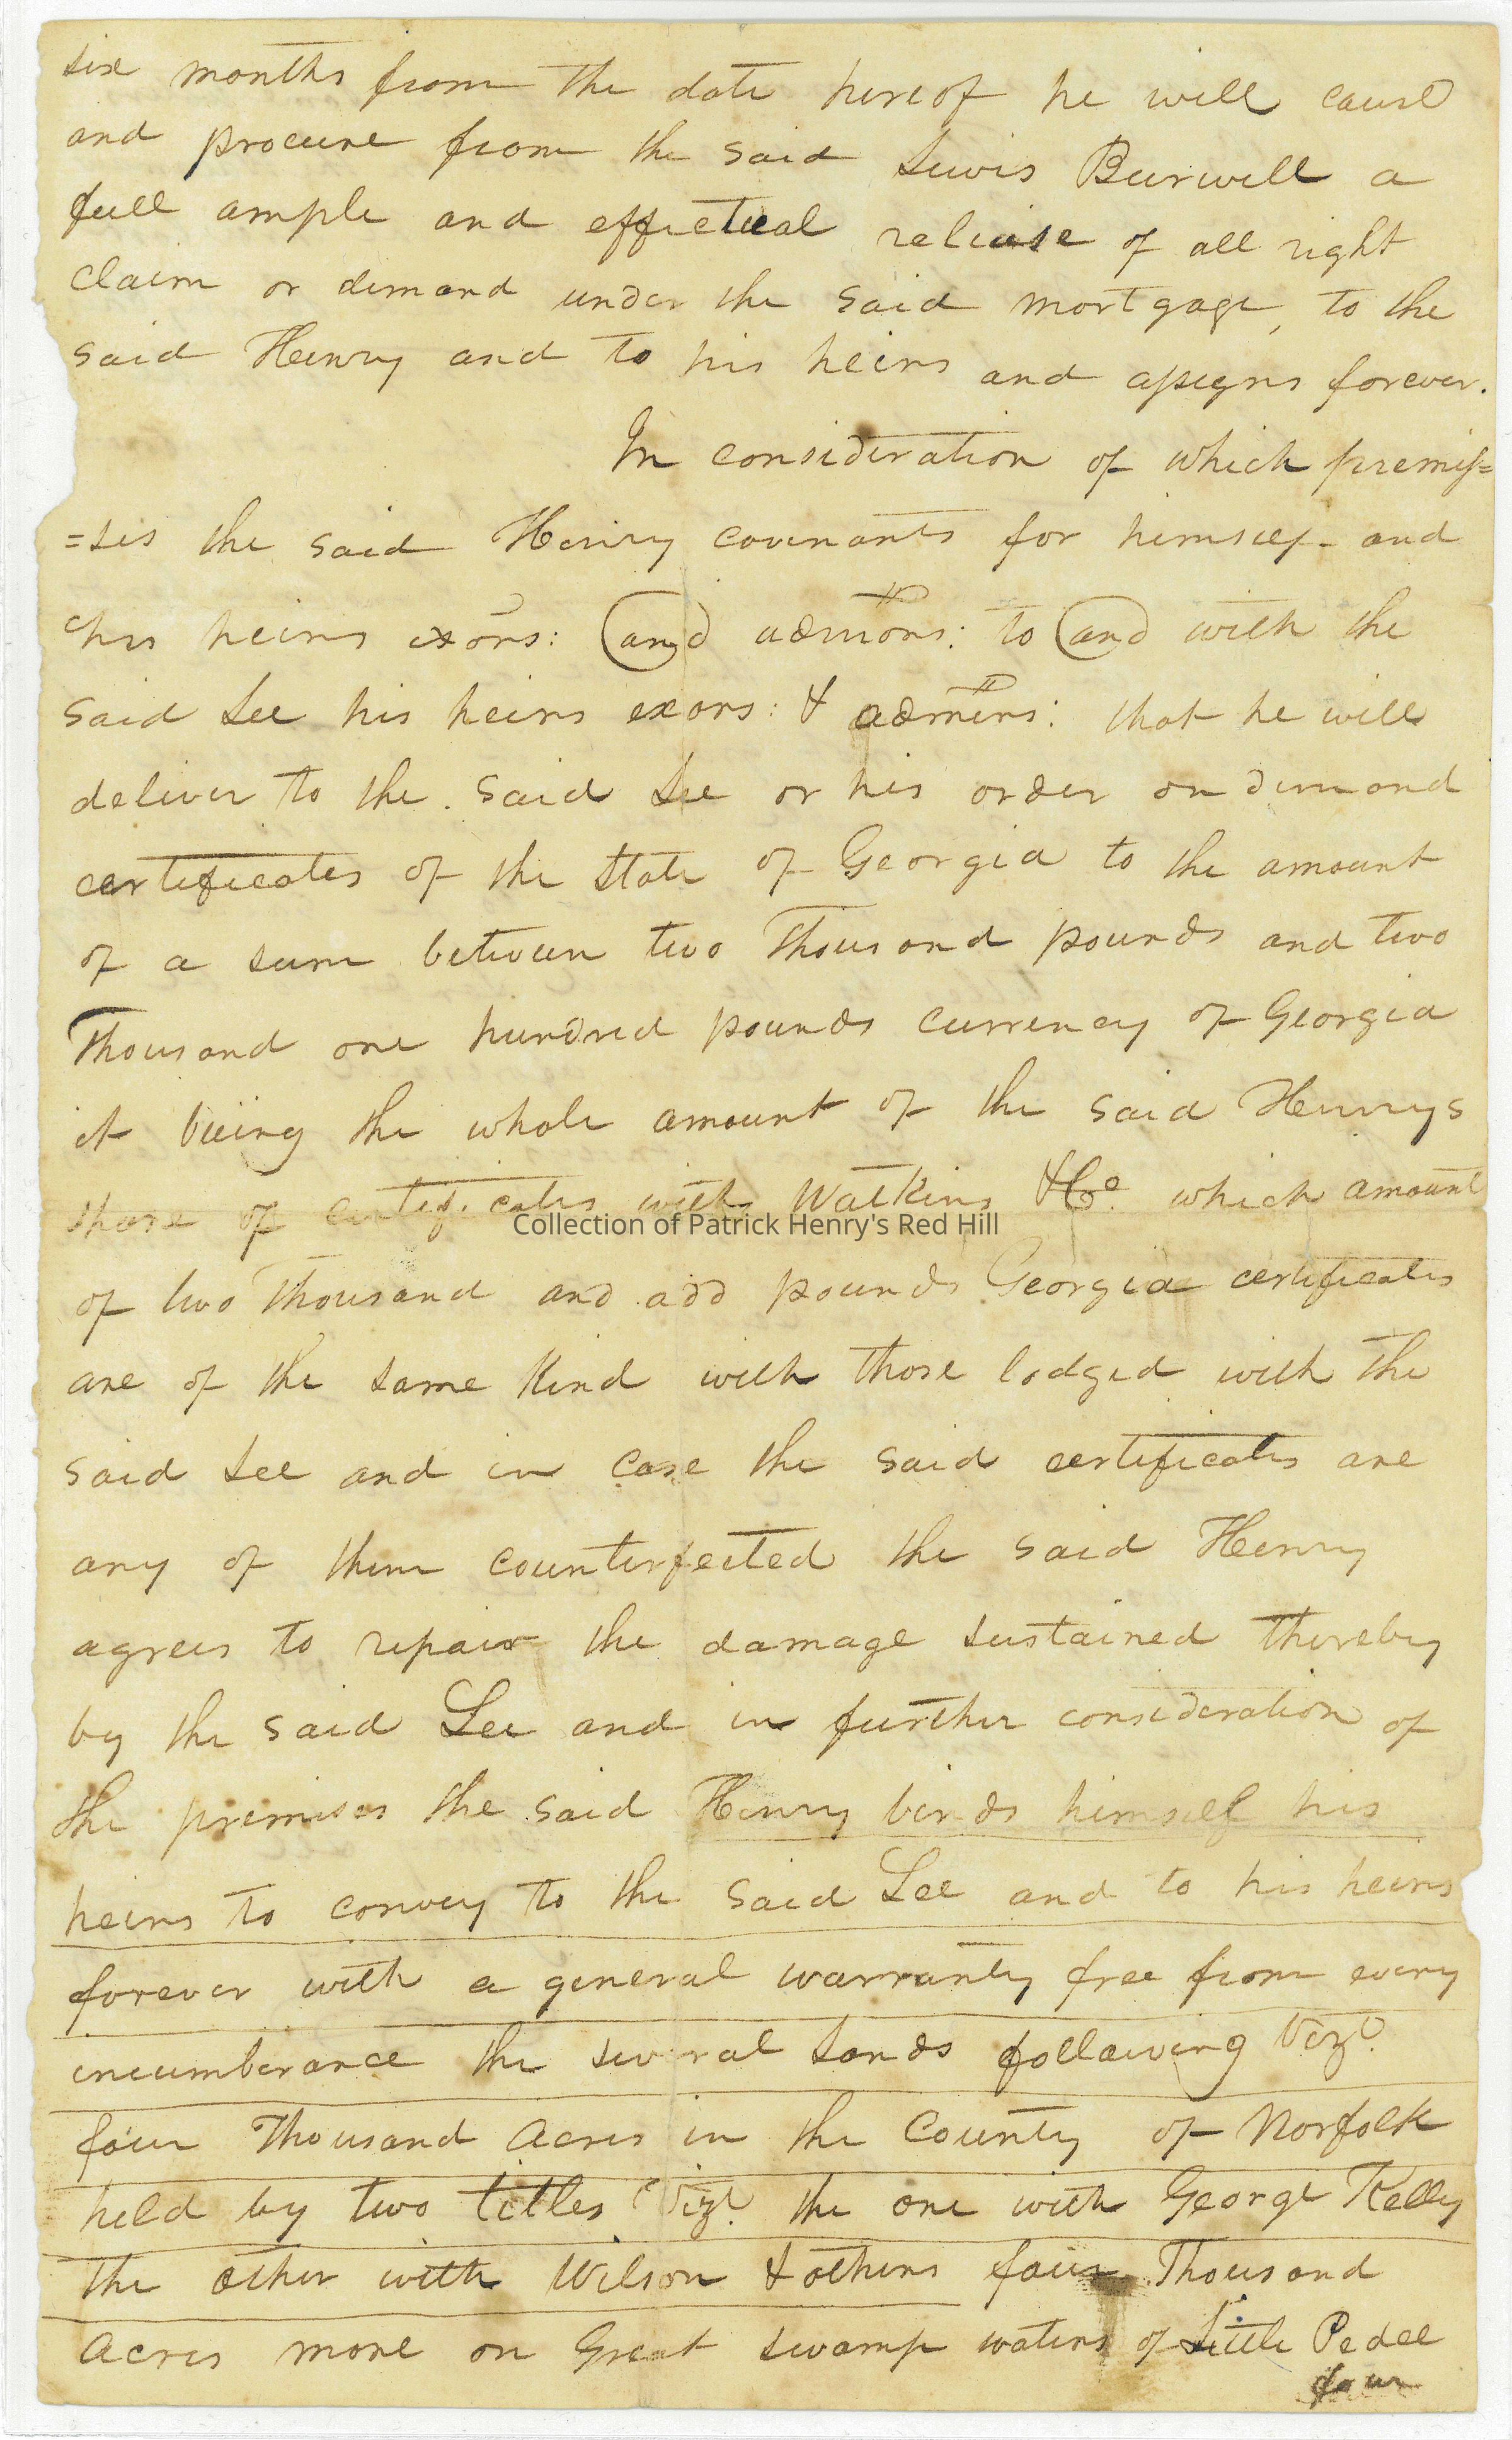 six months from the date hereof he will cause
and procure from the said Lewis Burwell a
full ample and effectual release of all right
claim or demand under the said mortgage, to the
said Henry and to his heirs and assigns forever.
In consideration of which premis=
=ses the said Henry covenants for himself and
his heirs exors: and admors: to and with the
said Lee his heirs exors: & admins: that he will
deliver to the said Lee or his order on demand
certificates of the State of Georgia to the amount
of a sum between two Thousand pounds and two
Thousand one hundred pounds currency of Georgia
it being the whole amount of the said Henrys
share of certificates with Watkins & Co. which amount
Collection of Patrick Henry's Red Hill
of two Thousand and add pounds Georgia certificates
are of the same Kind with those lodged with the
said Lee and in case the said certificates are
any of them counterfeited the said Henry
agrees to repair the damage sustained thereby
by the said Lee and in further consideration of
the premises the said Henry binds himself his
heirs to convey to the said Lee and to his heirs
forever with a general warranty free from every
incumberance the several Lands following Vizt.
four Thousand Acres in the County of Norfolk
held by two titles Vizt. the one with George Kelly
the other with Wilson & others four Thousand
Acres more on Great swamp waters of Little Pedee
four